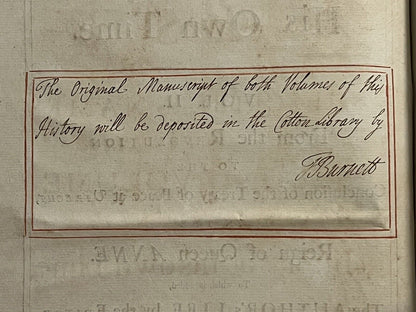 His Own Time.
The Original Manuscript of both Volumes of this
History will be deposited in the Cotton Library by
TBurnett
VOL. II.
From the REVOLUTION
TO
Conclusion of the Treaty of Peace at UTRECHT
Reign of Queen ANNE.
To which is added,
The AUTHOR's LIFE by the EDITOR